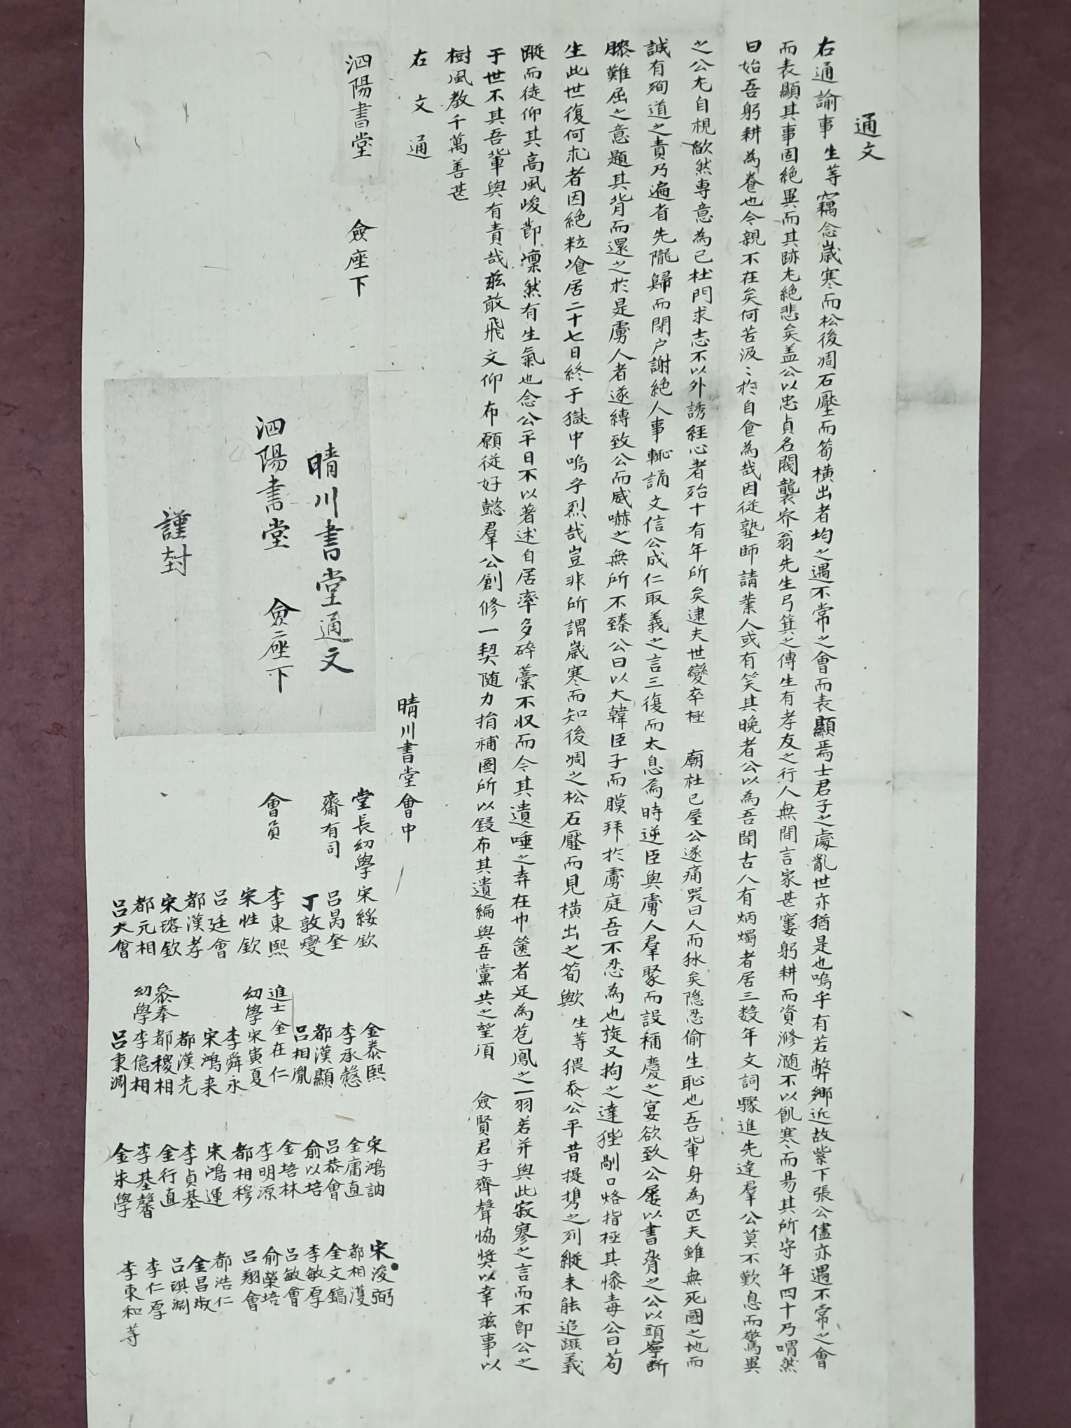 通文
右通諭事生等竊念歲寒而松後凋石壓而筍橫出者均之遇不常之會而表顯焉士君子之處亂世亦猶是也嗚乎有若弊鄉近故紫下張公儘亦遇不常之會
而表顯其事固絶異而其跡尤絶悲矣盖公以忠貞名閥襲岕翁先生弓箕之傳生有孝友之行人無間言家甚窶躬耕而資滫瀡不以飢寒而易其所守年四十乃喟然
曰始吾躬耕為養也今親不在矣何苦汲〻於自食為哉因從塾師請業人或有笑其晚者公以為吾聞古人有炳燭者居三数年文詞驟進先達羣公莫不歎息而驚異
之公尤自視歉然專意為己杜門求志不以外誘経心者殆十有年所矣逮夫世變卒極 廟社已屋公遂痛哭曰人而秋矣隐忍偷生恥也吾輩身為匹夫雖無死國之地而
誠有殉道之責乃遍省先隴歸而閉户謝絶人事輒誦文信公成仁取義之言三復而太息焉時逆臣與虜人羣聚而設稱慶之宴欲致公屢以書脅之公以頭寧断
膝難屈之意題其背而還之於是虜人者遂縛致公而威嚇之無所不臻公曰以大韓臣子而膜拜於虜庭吾不忍為也旋又拘之達狴剮口烙指極其惨毒公曰苟
生此世復何求者因絶粒飡居二十七日終于獄中嗚乎烈哉豈非所謂歲寒而知後凋之松石壓而見橫出之筍歟生等猥忝公平昔提携之列縱未能追踵義
蹤而徒仰其高風峻節凛然有生氣也念公平日不以著述自居率多碎藁不収而今其遺唾之弆在巾篋者足為苞鳳之一羽若并與此寂寥之言而不卽公之
于世不其吾輩與有責哉兹敢飛文仰布願従好懿羣公創修一契随力捐補圖所以鋟布其遺編與吾黨共之望須 僉賢君子齊聲恊奬以幸兹事以
樹風教千萬善甚
右文通
泗陽書堂 僉座下
晴川書堂會中
堂長幼學宋綬欽
齋有司呂昺奎
丁敦燮
會員李東熙
宋性欽
呂廷會
都漢孝
宋瑢欽
都元相
呂大會
金泰熙
李承愨
都漢顯
呂相胤
進士金在仁
幼學宋寅夏
李舜永
宋鴻来
都漢光
叅奉都稷相
幼學李億相
呂東淵
宋鴻訥
金庸直
呂恭會
俞以培
金培林
李明源
都相穆
宋鴻運
李貞基
金行直
李基馨
金朱學
宋浚弼
都相濩
金文鎬
李敏厚
呂敏會
俞榮培
呂翔會
都浩仁
金昌珱
呂騏淵
李仁厚
李東和等
晴川書堂通文
泗陽書堂 僉座下
謹封